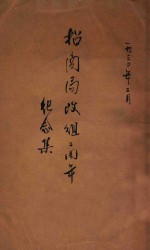 一九三〇年三月
招商局改组二周年
纪念集